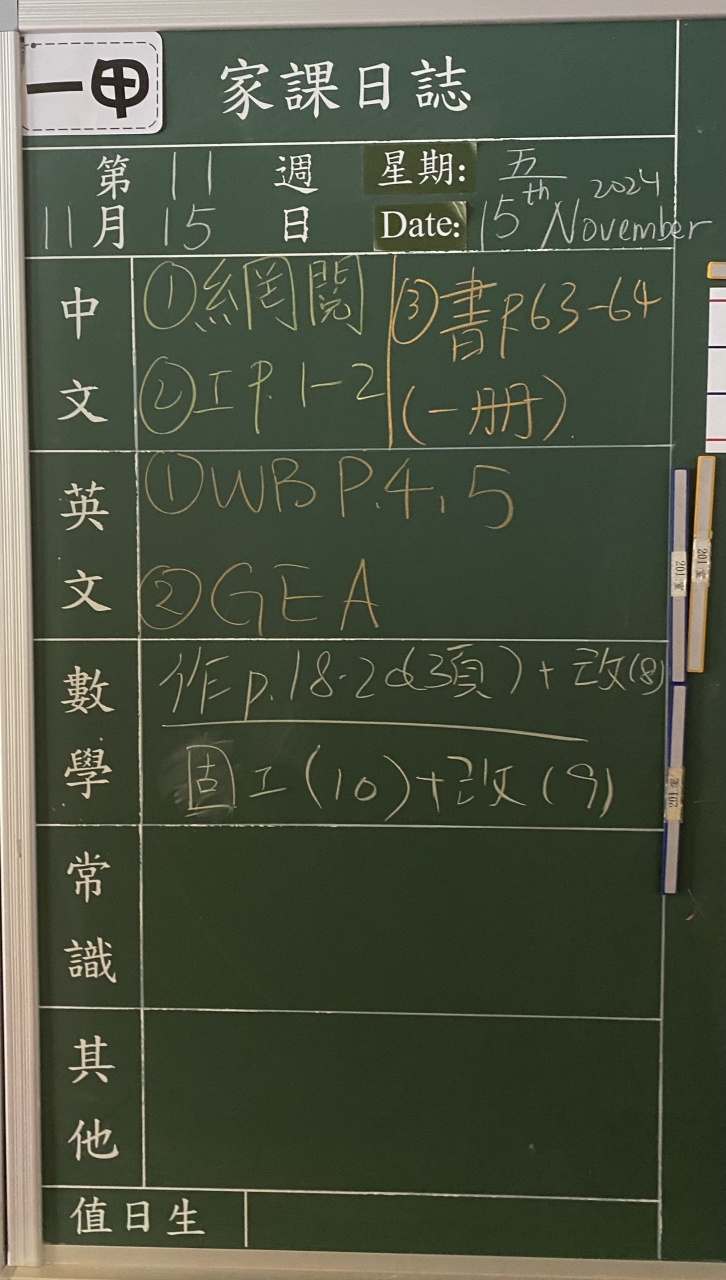 一甲
家課日誌
第 11 週 星期: 五
11月 15 日 Date: 15th November 2024
中文
①網閱
②工 P. 1-2
③書 P63-64
(一册)
英文
①WB P.4,5
②GEA
數學
作 p.18-20(3頁) + 改(8)
固工(10)+改(9)
常識
其他
值日生
201室
201室
201室